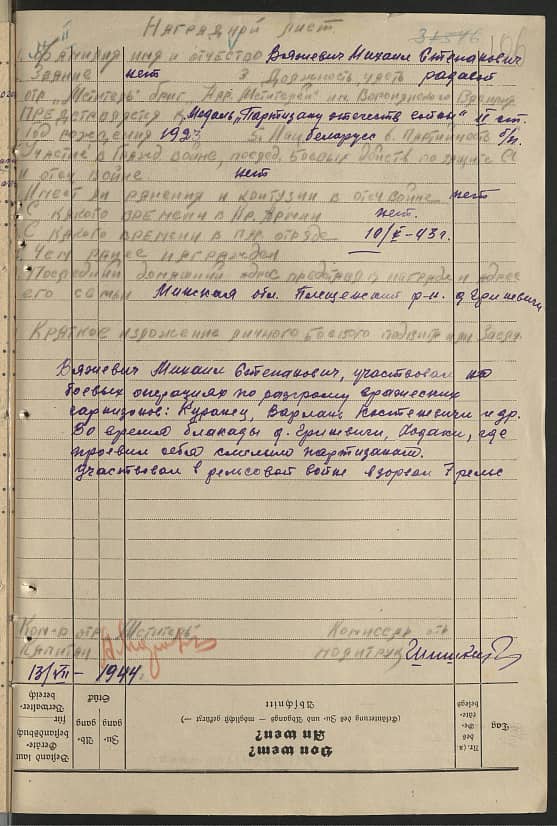 Наградной лист
1. Фамилия имя и отчество Вяжевич Михаил Степанович
2. Звание нет 3 Должность часть рядовой
отр „Мститель" бриг. Нар. Мстителей им Воронянского
Представляется к Медаль „Партизану отечеств войны" II ст.
Год рождения 1923 5. Нац беларус 6. Партийность б/п.
Участие в Гражд войне, послед. боевых действ по защите СССР
и отеч войне нет
Имеет ли ранения и контузии в отеч войне нет
С какого времени в Кр. Армии нет.
С какого времени в пар. отряде 10/V-43 г.
Чем ранее награжден
Постоянный домашний адрес представл к награде и адрес
его семьи Минская обл. Плещенский р-н. д Гриневичи
Краткое изложение личного боевого подвига или заслуг
Вяжевич Михаил Степанович, участвовал на
боевых операциях по разгрому вражеских
гарнизонов: Куранец, Костеневичи и др.
Во время блакады д. Гриневичи, Ходаки, где
проевил себя смелым партизаном.
Участвовал в рельсовой войне взорвал 7 рельс
Ком-р отр „Мститель" Комиссар отр
Капитан политрук
13/VII - 1944 г.
Bestand laut Geräte-bestandsbuch für Verwalter-bereich
Stück
Zu-gang
Ab-gang
Abschnitt
(Erläuterung des Zu- und Abgangs — möglichst gekürzt —)
Von wem?
An wen?
Nr.(a) des Ge-räte-belegs
Tag